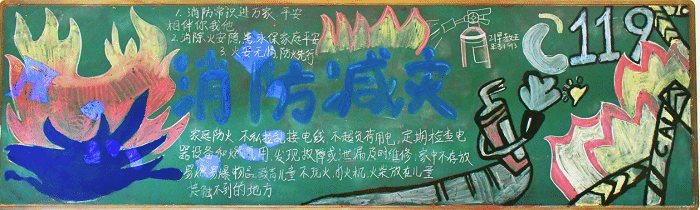 1. 消防常识进万家, 平安
相伴你我他
2. 消除火灾隐患, 永保家庭平安
3. 火灾无情, 防火先行
119
消防减灾
家庭防火, 不私拉乱接电线, 不超负荷用电, 定期检查电
器设备和燃 用 发现故障或泄漏及时维修, 家中不存放
易燃易爆物品 教育儿童 不玩火, 打火机, 火柴放在儿童
接触不到的地方